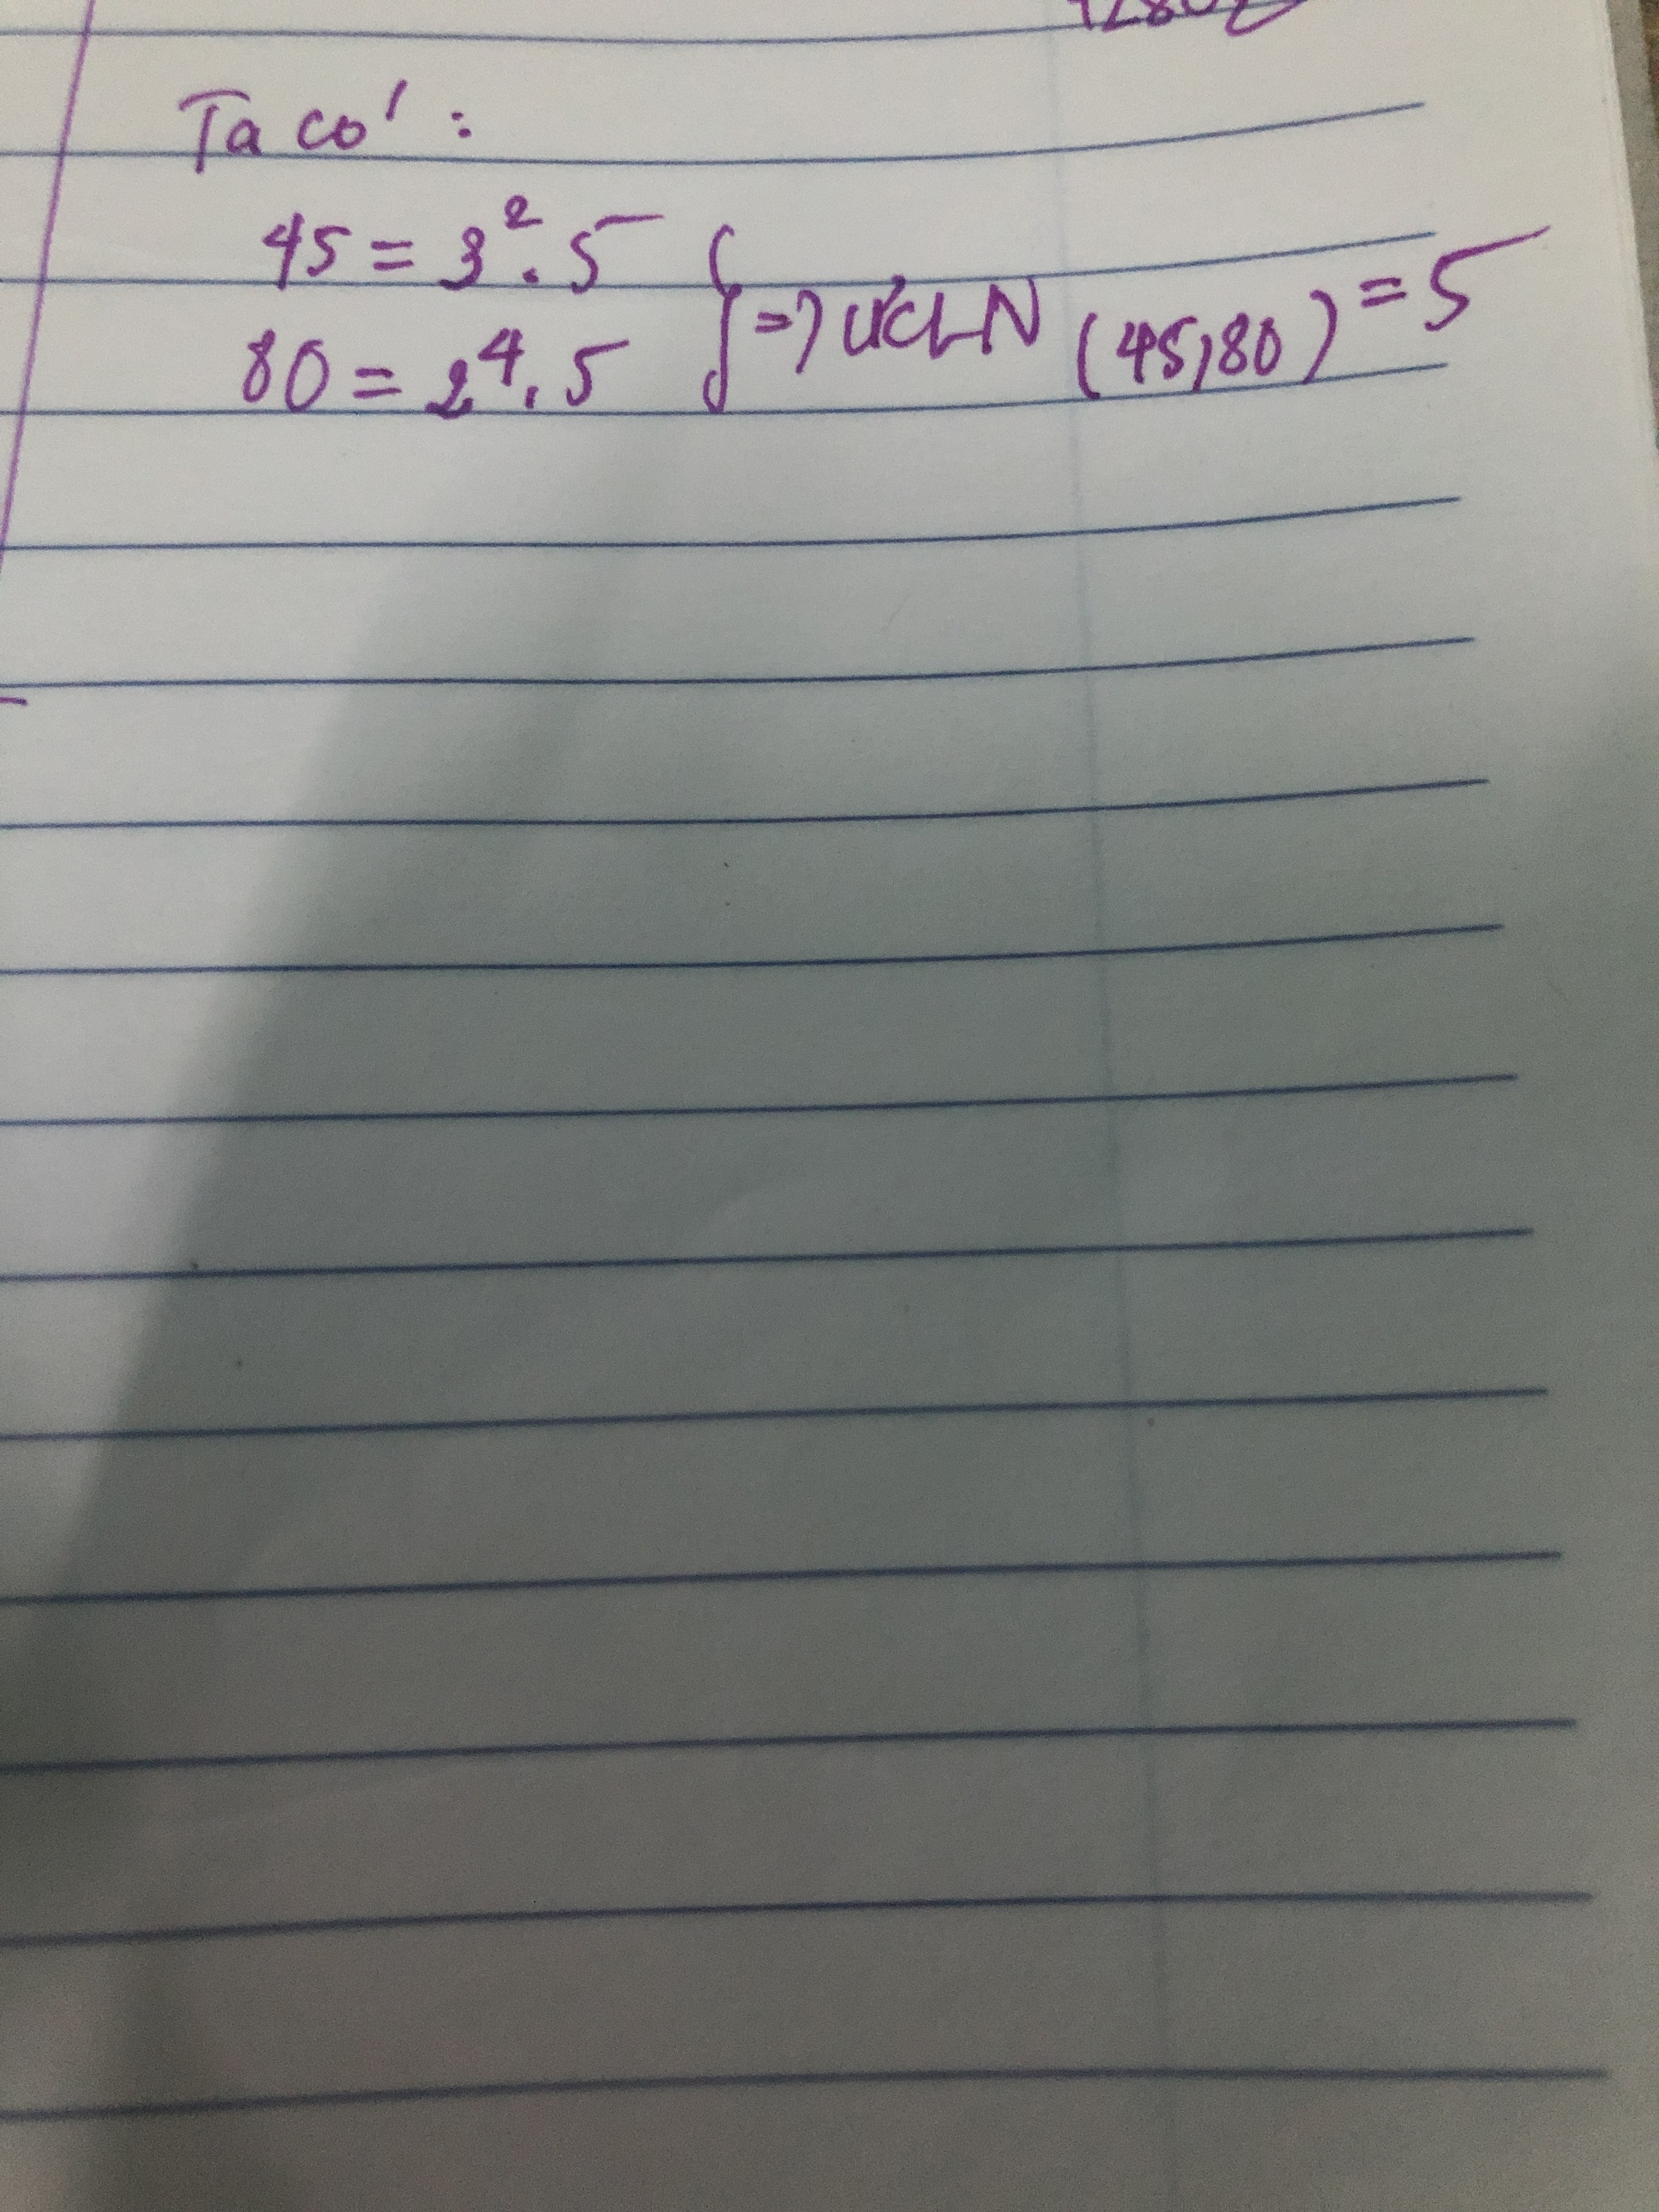 Ta có :
45 = 3². 5
80 = 2⁴. 5 } => ƯCLN (45,80) = 5